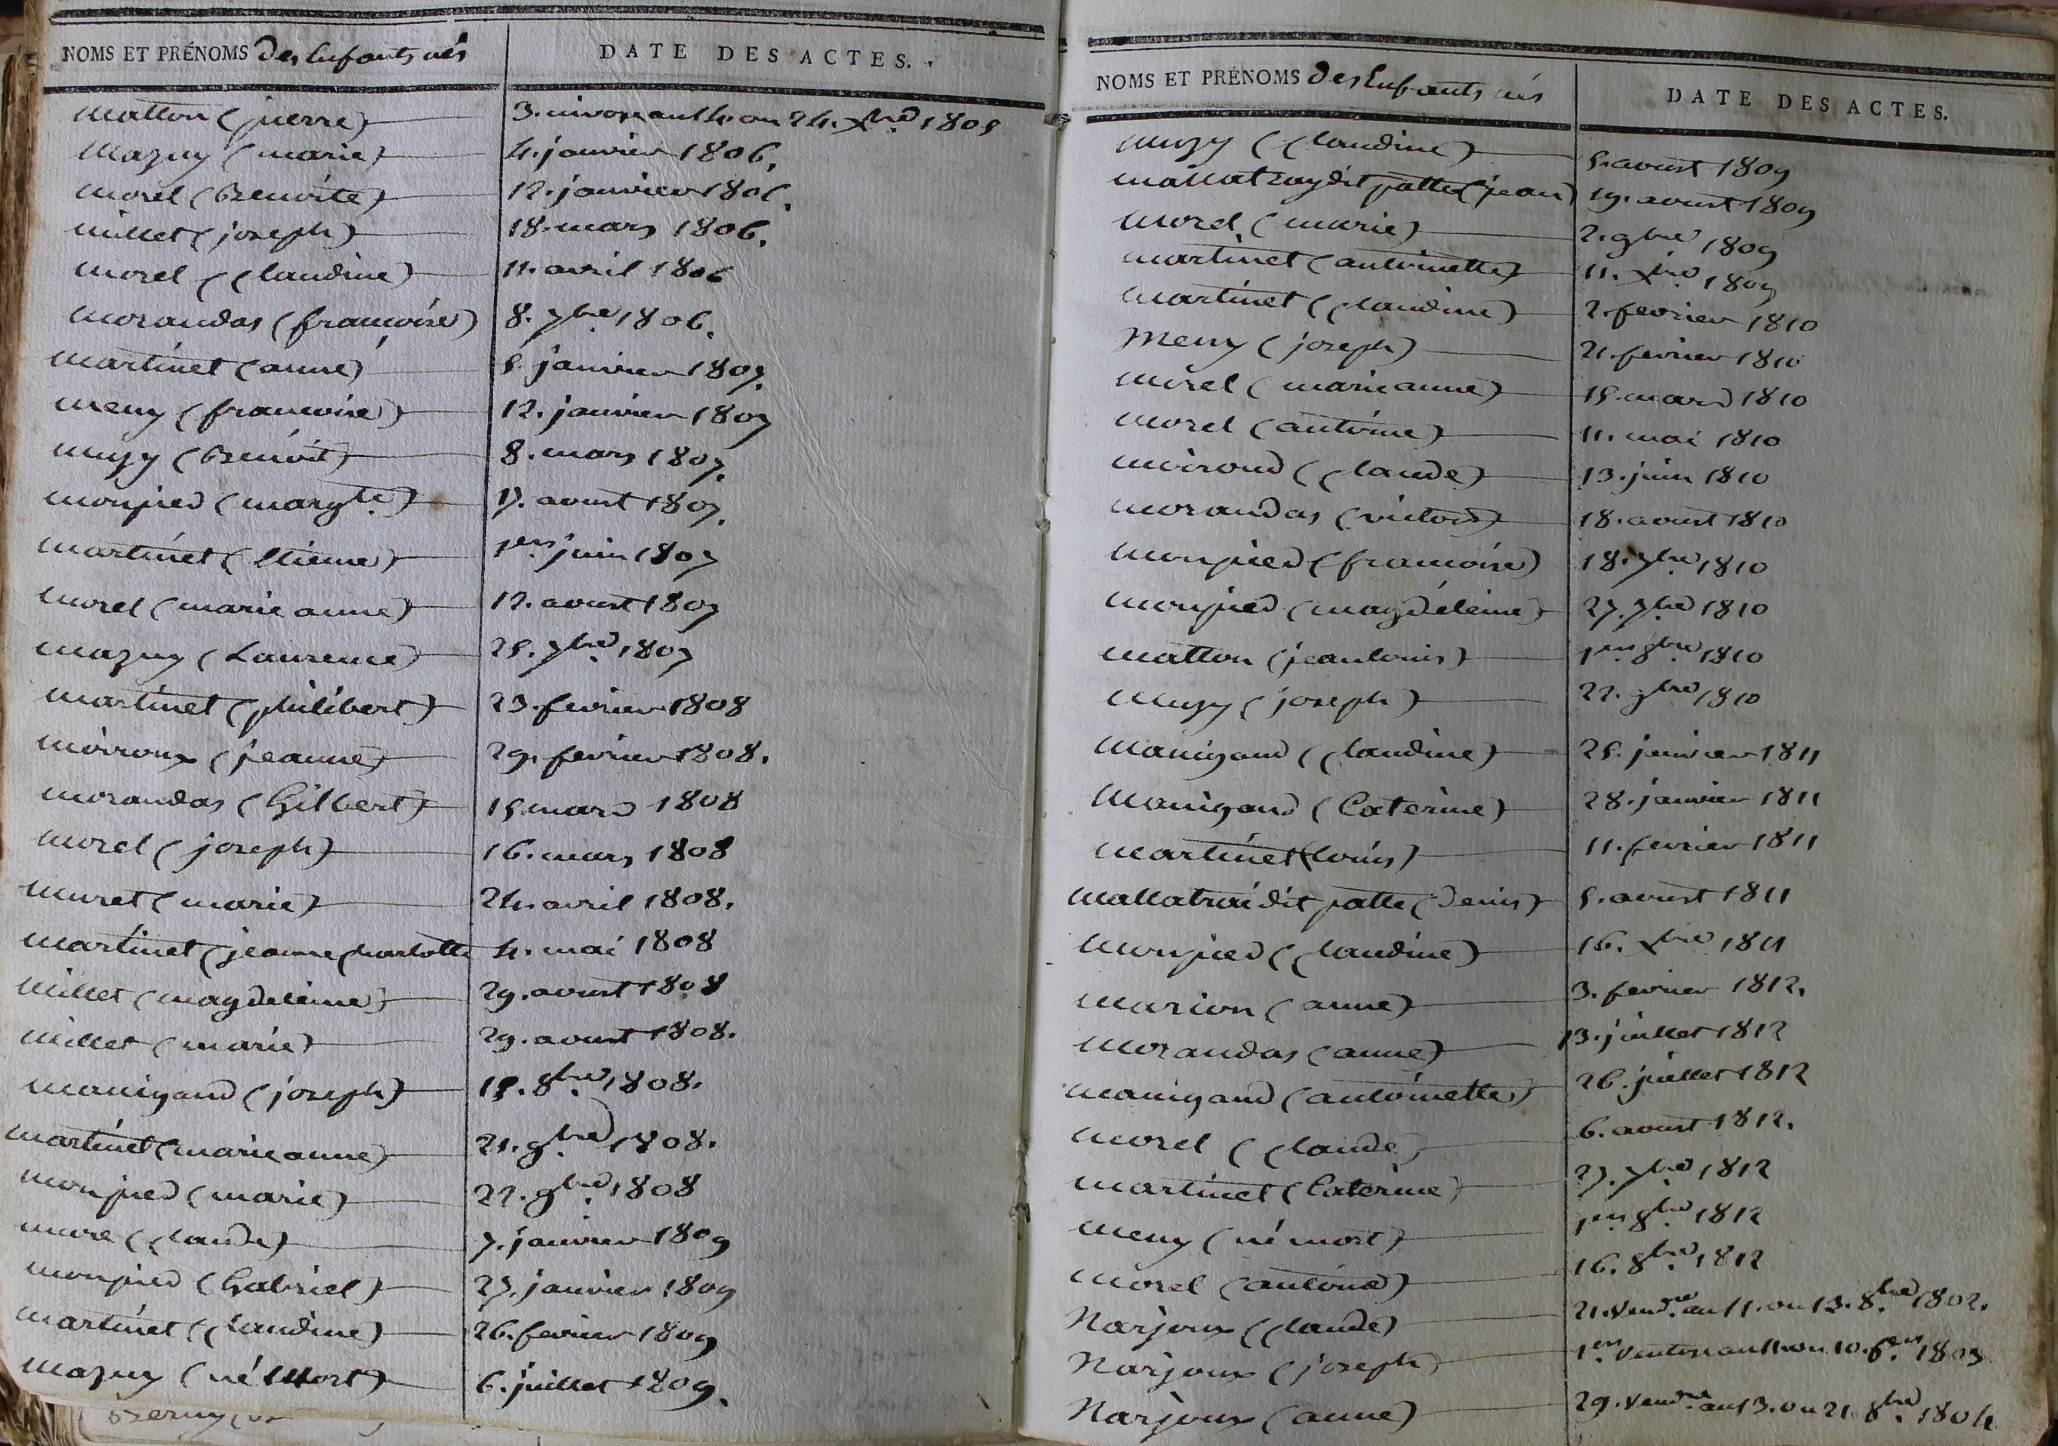 NOMS ET PRÉNOMS des Enfants nés DATE DES ACTES.
Matton (pierre) 3. nivose an 14. ou 24. Xbre 1805
Mazuy (marie) 4. janvier 1806.
Morel (Benoite) 12. janvier 1806.
Millet (joseph) 18. mars 1806.
Morel (Claudine) 11. avril 1806
Morandas (francoise) 8. 7bre 1806.
Martinet (anne) 5. janvier 1807.
Meny (francoise) 12. janvier 1807
Muzy (Benoit) 8. mars 1807.
Monpied (margte) 17. aoust 1807.
Martinet (Etienne) 1er juin 1807
Morel (marie anne) 12. aoust 1807
Mazuy (Laurence) 25. 7bre 1807
Martinet (philibert) 23. fevrier 1808
Moiroux (jeanne) 29. fevrier 1808.
Morandas (Gilbert) 15 mars 1808
Morel (joseph) 16. mars 1808
Muret (marie) 24. avril 1808.
Martinet (jeanne Charlotte 4. mai 1808
Millet (magdeleine) 29. aoust 1808
Millet (marie) 29. aoust 1808.
Manigand (joseph) 15. 8bre 1808.
Martinet (marie anne) 21. 9bre 1808.
Monpied (marie) 22. 9bre 1808
More (Claude) 7. janvier 1809
Monpied (Gabriel) 27. janvier 1809
Martinet (Claudine) 26. fevrier 1809
Mazuy (né Mort) 6. juillet 1809.
NOMS ET PRÉNOMS des Enfants nés DATE DES ACTES.
Muzy (Claudine) 5. aoust 1809
Mallatray dit patte (jean) 19. aoust 1809
Morel (marie) 2. 9bre 1809
Martinet (antoinette) 11. Xbre 1809
Martinet (Claudine) 2 fevrier 1810
Meny (joseph) 21. fevrier 1810
Morel (marie anne) 15 mars 1810
Morel (antoine) 11. mai 1810
Moiroud (Claude) 13. juin 1810
Morandas (victor) 18. aoust 1810
Monpied (francoise) 18. 7bre 1810
Monpied (magdeleine) 27. 7bre 1810
Matton (jean louis) 1er 8bre 1810
Muzy (joseph) 22. 9bre 1810
Manigand (Claudine) 25. janvier 1811
Manigand (Caterine) 28. janvier 1811
Martinet (louis) 11. fevrier 1811
Mallatrai dit patte (Denis) 5. aoust 1811
Monpied (Claudine) 16. Xbre 1811
Marion (anne) 3. fevrier 1812.
Morandas (anne) 13. juillet 1812
Manigand (antoinette) 26. juillet 1812
Morel (Claude) 6. aoust 1812.
Martinet (Caterine) 27. 7bre 1812
Meny (né mort) 1er 8bre 1812
Morel (antoine) 16. 8bre 1812
Narjoux (Claude) 21. Vendre an 11. ou 13. 8bre 1802.
Narjoux (joseph) 1er Ventose an 11 ou 20. fer 1803
Narjoux (anne) 29. Vendre an 13. ou 21. 8bre 1804